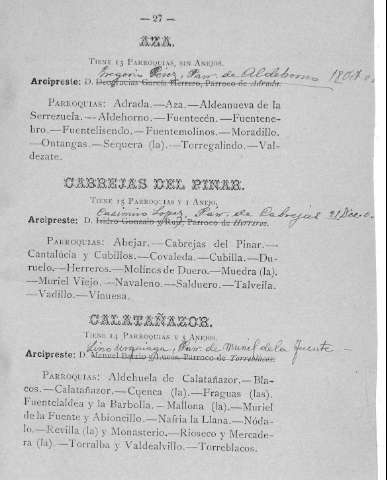 — 27 —
AZA.
TIENE 13 PARROQUIAS, SIN ANEJOS.
Gregorio Pérez, Párr. de Aldehorno 18 Oct.
Arcipreste: D. Deogracias García Herrero, Párroco de Adrada.
PARROQUIAS: Adrada.—Aza.—Aldeanueva de la
Serrezuela.—Aldehorno.—Fuentecén.—Fuentene-
bro.—Fuentelisendo.—Fuentemolinos.—Moradillo.
—Ontangas.—Sequera (la).—Torregalindo.—Val-
dezate.
CABREJAS DEL PINAR.
TIENE 15 PARROQUIAS Y 1 ANEJO.
Casimiro Lopez, Párr. de Cabrejas 21 Dice.
Arcipreste: D. Isidro Gonzalo y Roy, Párroco de Herreros.
PARROQUIAS: Abejar.—Cabrejas del Pinar.—
Cantalúcia y Cubillos.—Covaleda.—Cubilla.—Du-
ruelo.—Herreros.—Molinos de Duero.—Muedra (la).
—Muriel Viejo.—Navaleno.—Salduero.—Talveila.
—Vadillo.—Vinuesa.
CALATAÑAZOR.
TIENE 14 PARROQUIAS Y 5 ANEJOS.
Lino Urquiaga, Párr. de Muriel de la Fuente
Arcipreste: D. Manuel y Párroco de Torreblacos.
PARROQUIAS: Aldehuela de Calatañazor.—Bla-
cos.—Calatañazor.—Cuenca (la).—Fraguas (las).
Fuentelaldea y la Barbolla.—Mallona (la).—Muriel
de la Fuente y Abioncillo.—Nafria la Llana.—Nóda-
lo.—Revilla (la) y Monasterio.—Rioseco y Mercade-
ra (la).—Torralba y Valdealvillo.—Torreblacos.